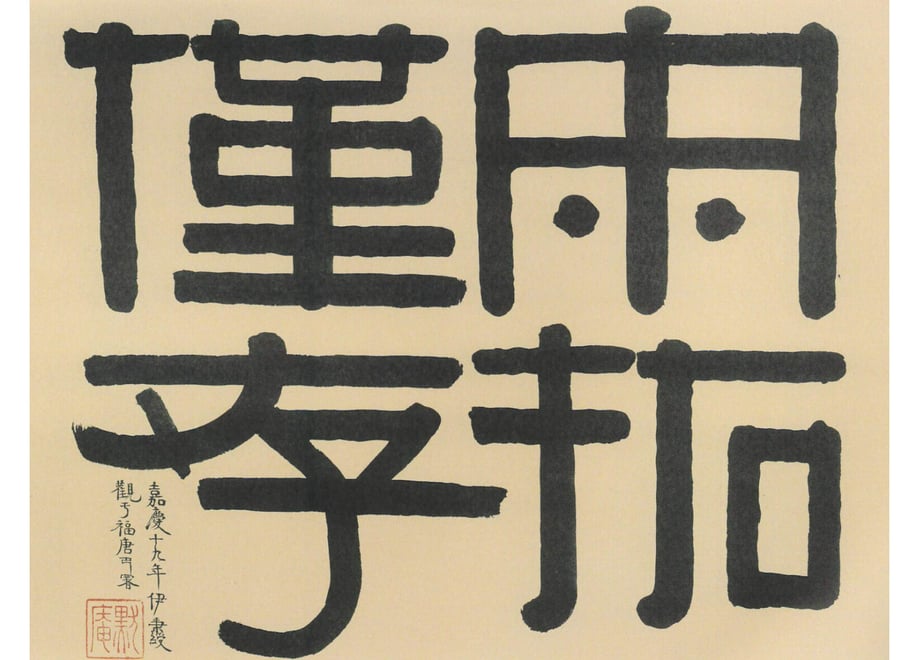 雨拓
僅存
嘉慶十九年伊秉綬
觀于福唐
默庵